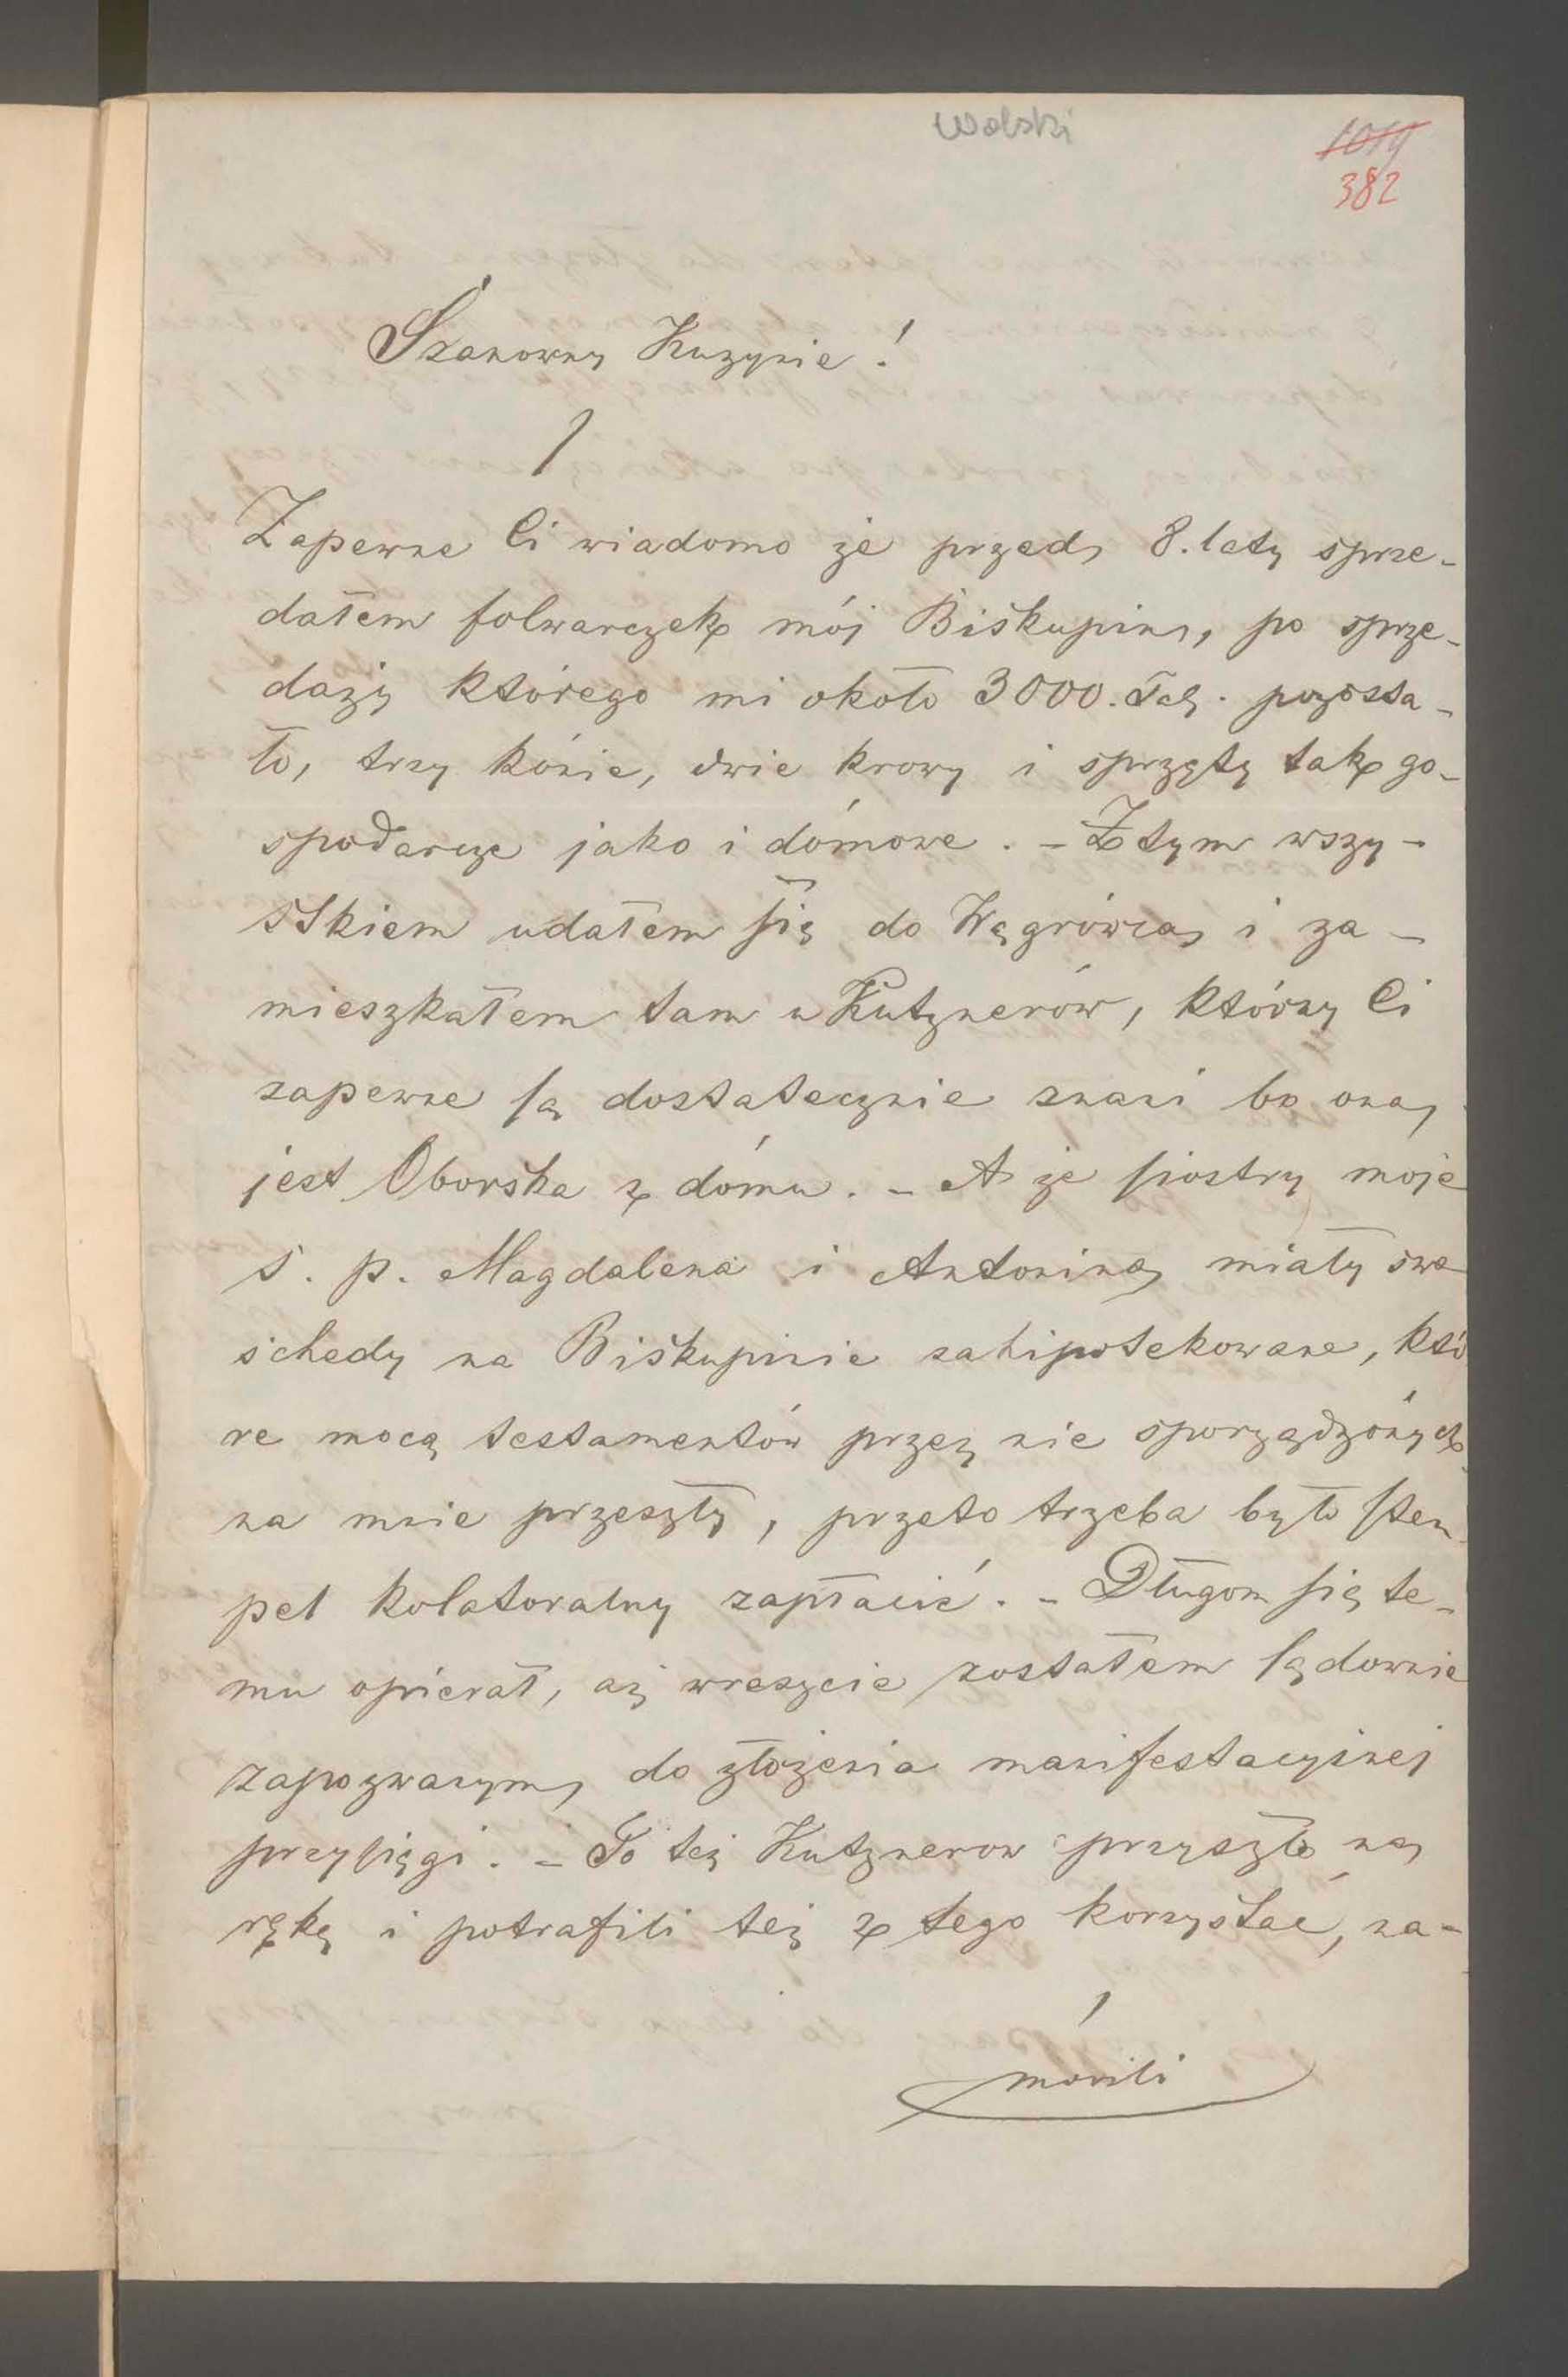 Wolski
1019
382
Szanowny Kuzynie!
Zapewne Ci wiadomo że przed 8. laty sprze-
dałem folwarczek mój Biskupin, po sprze-
daży którego mi około 3000. Tal. pozosta-
ło, trzy kónie, dwie krowy i sprzęty tak go-
spodarcze jako i dómowe. - Z tym wszy-
stkiem udałem się do Wągrówca i za-
mieszkałem tam u Kutznerów, którzy Ci
zapewne są dostatecznie znani bo ona
jest Oborska z dómu. - A że siostry moje
ś. p. Magdalena i Antonina miały swe
schedy na Biskupinie zahipotekowane, któ
re mocą testamentów przez nie sporządzónych
na mnie przeszły, przeto trzeba było stem
pel kolatoralny zapłacić. - Długom się te-
mu opierał, aż wreszcie zostałem sądownie
zapozwanym do złożenia manifestacyjnej
przysięgi. - To też Kutznerow przyszło na
rękę i potrafili też z tego korzystać, na-
mówili